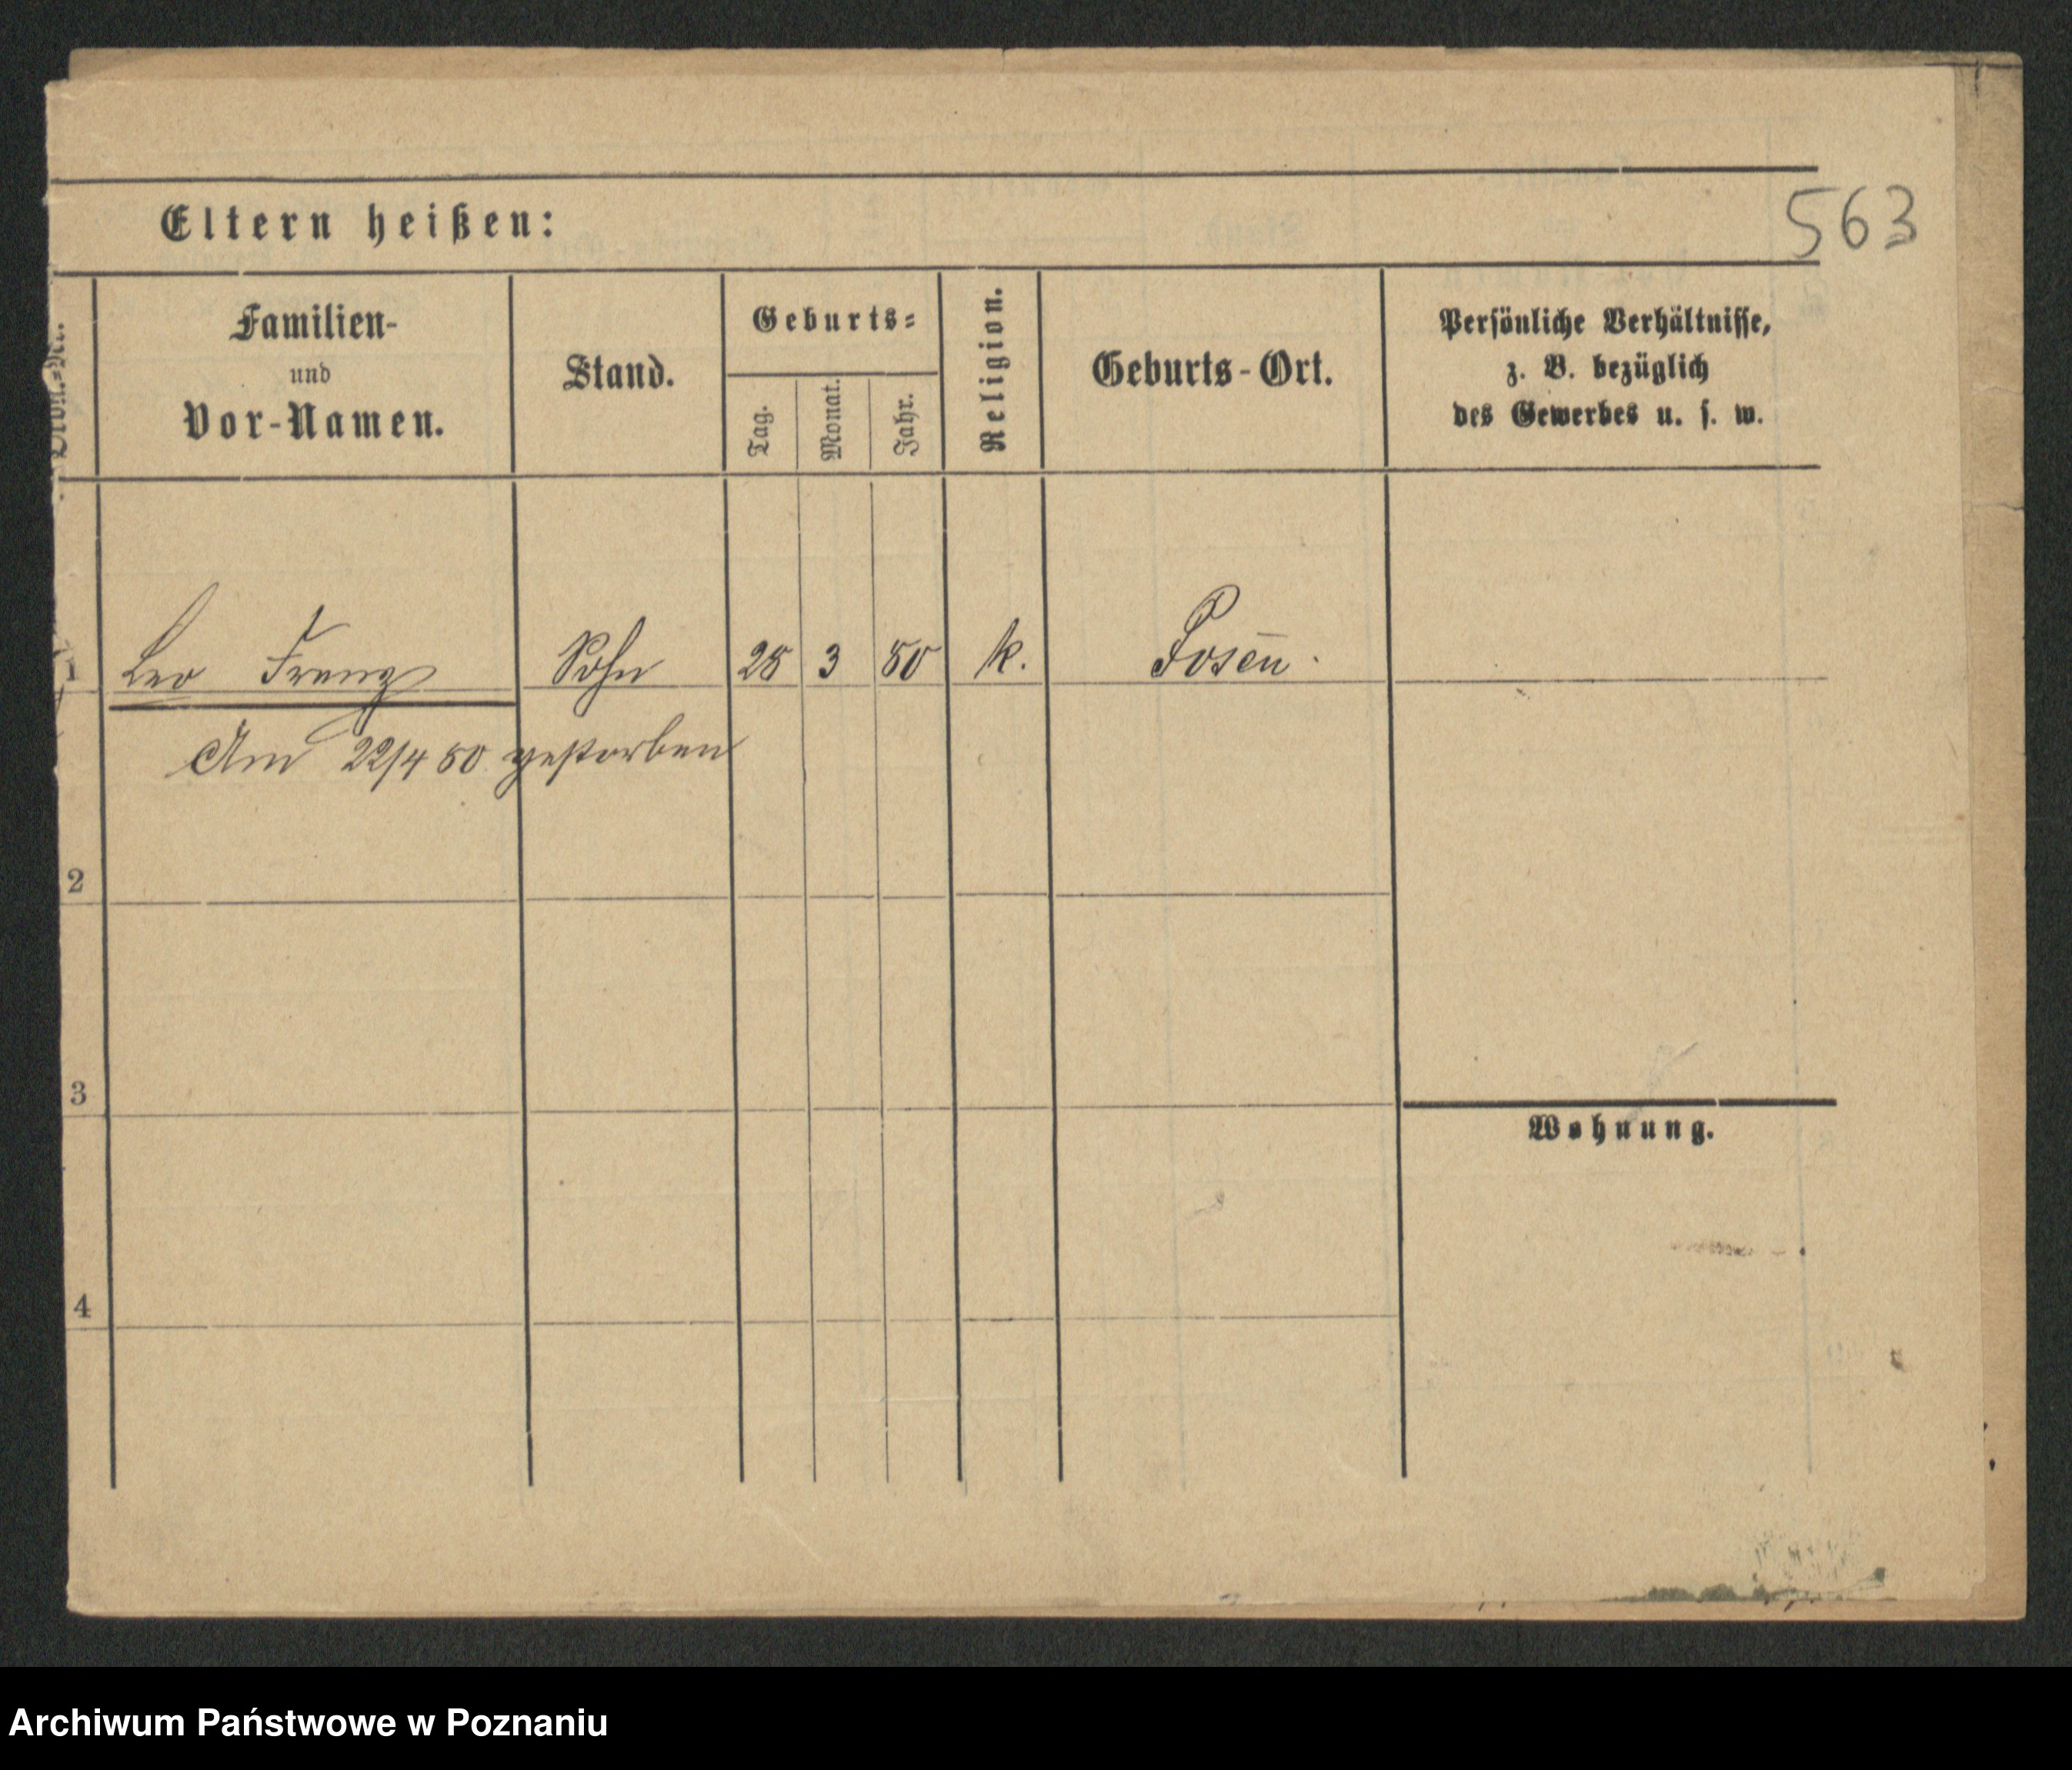 563
Eltern heißen:
Ordn.=Nr.
Familien-
und
Vor-Namen.
Stand.
Geburts=
Tag.
Monat.
Jahr.
Religion.
Geburts-Ort.
Persönliche Verhältnisse,
z. B. bezüglich
des Gewerbes u. s. w.
1 Leo Franz Sohn 28 3 80 k. Posen.
Am 22/4 80 gestorben
2
3
Wohnung.
4
Archiwum Państwowe w Poznaniu